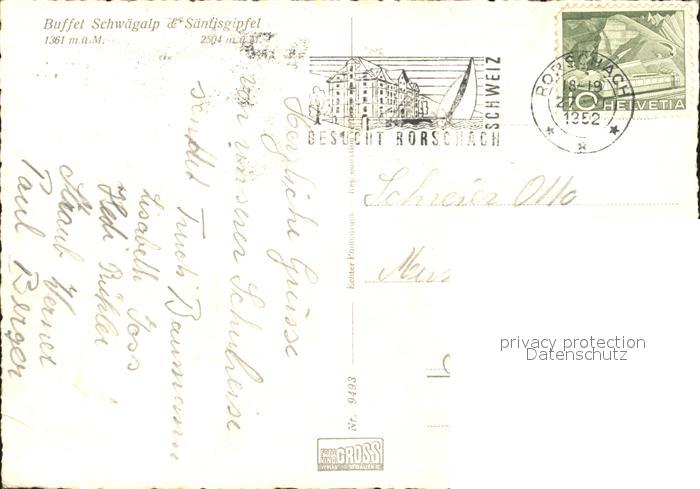 Buffet Schwägalp & Säntisgipfel
1361 m.ü.M. 2504 m.ü.M.
BESUCHT RORSCHACH
SCHWEIZ
RORSCHACH
18-19
1952
10 HELVETIA
Herzliche Grüsse
von unserer Schulreise
sendet Truch Baumann
Lisabeth Joss
Hedi Bühler
Straub Werner
Paul Berger
Schreier Otto
Echter Photodruck
Nr. 9493
GROSS
privacy protection
Datenschutz